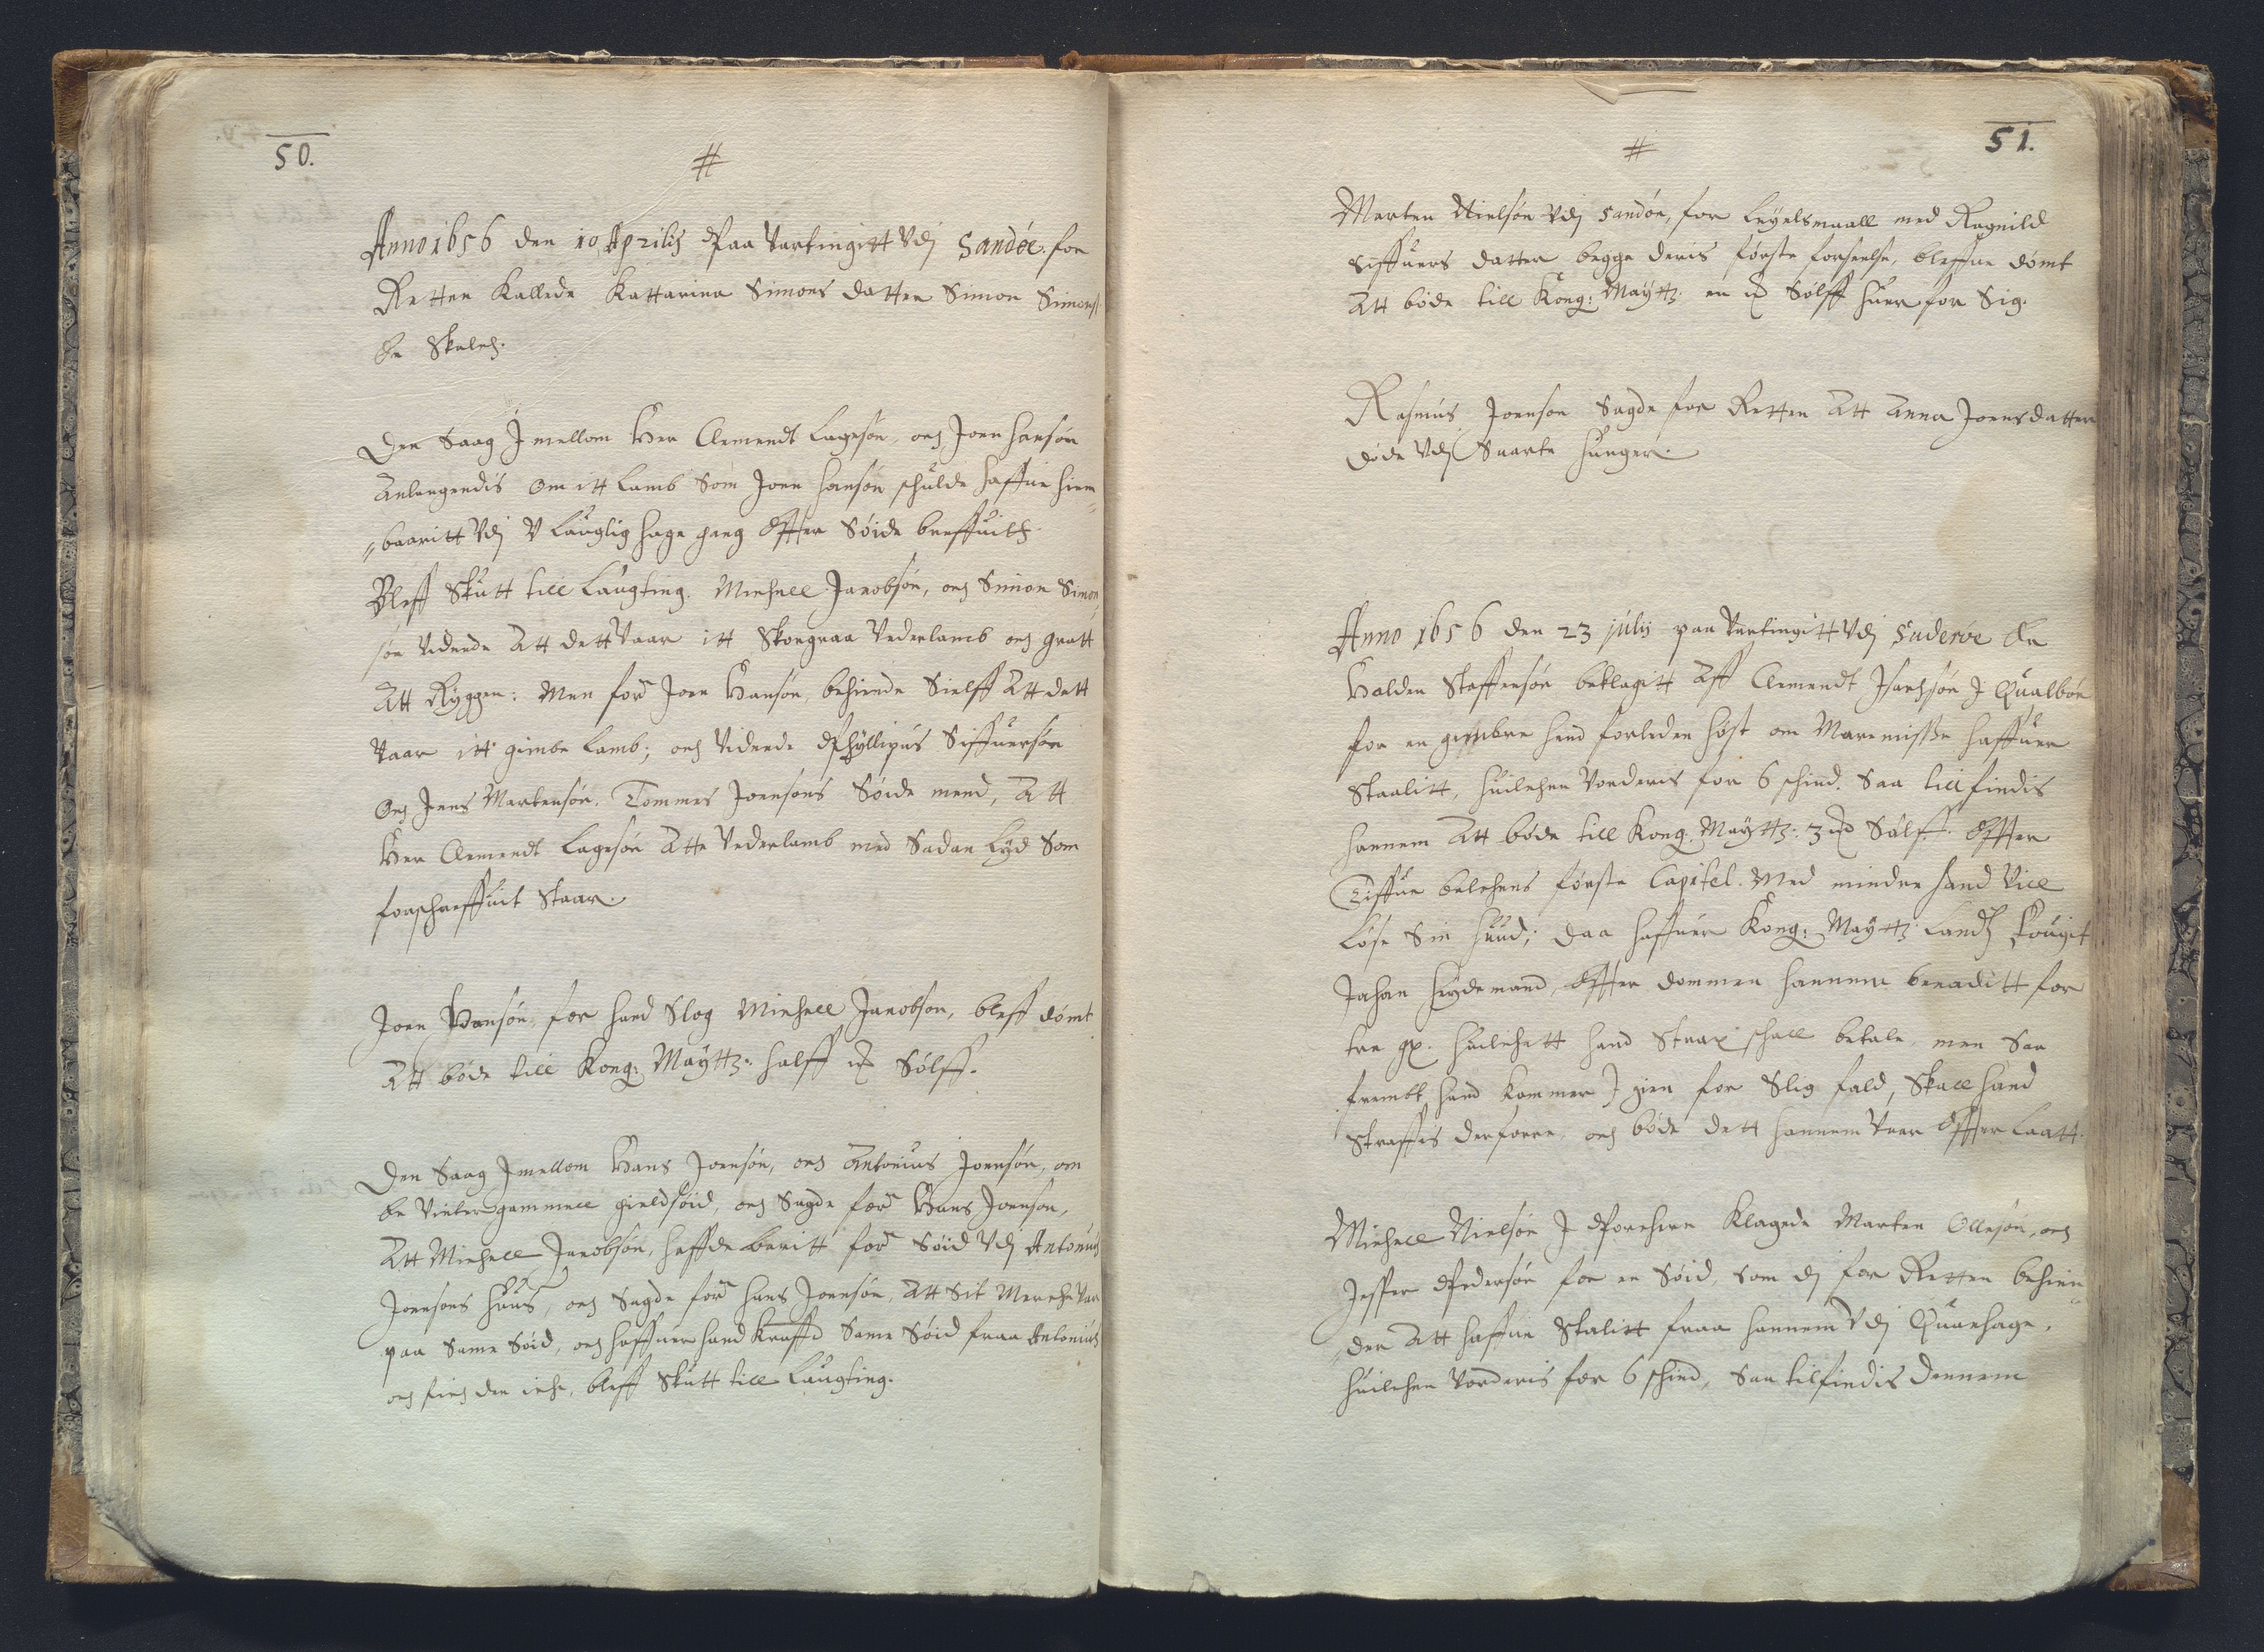 50.
#
Anno 1656 den 10 Aprilis Paa Vartingitt Vdj Sandöe. for
Retten Kallede Kattarina Simons datter Simon Simons
En Skalch.
Den Saag J mellom Her Clemendt Lagesön, och Joen Hansön
Anlangendis Om itt Lamb Som Joen Hansön schulde haffue hiem
baaritt Vdj V Lauglig hage gang Effter Söide breffuith.
Bleff Skutt till Laugting. Michell Jacobsön, och Simon Simon
sön Vidnede Att dett Vaar itt Skongraa Vederlamb och graatt
Att Ryggen: Men for Joen Hansön behiende Sielff Att dett
Vaar itt gimbe Lamb; och Vidnede Phyllipus Siffuersön
Och Jens Martensön. Tommes Joensöns Söide mend, Att
Her Clemendt Lagesön Atte Vederlamb med Sadan Lyd Som
forschreffuit Staar.
Joen Hansön, for hand Slog Michell Jacobsön, bleff dömt
Att böde till Kong: Maytts: halff ℔ Sölff.
Den Saag Jmellom Hans Joensön, och Antonius Joensön, om
En Vintergammell gieldsöid, och Sagde for Hans Joensön,
Att Michell Jacobsön, haffde baritt for Söid Vdj Antonius
Joensöns Huus, och Sagde for Hans Joensön, Att Sit Merche Var
paa Same Söid, och haffuer hand Kraffd Same Söid fraa Antonius
och fich den iche, bleff Skutt till Laugting.
51.
#
Marten Nielsön Vdj Sandöe, for Leyelsmaall med Ragnild
Siffuers datter begge deris förste forseelse, bleffue dömt
Att böde till Kong: Maytts en ℔ Sölff huer for Sig.
Rasmus Joensön Sagde for Retten Att Anna Joensdatter
döde Vdj Suarte Hunger.
Anno 1656 den 23 julij paa Vartingitt Vdj Suderöe Er
Halden Staffensön beklagitt Aff Clemendt Isachsön J Qualböe
for en gimbre hand forleden höst om Maremisse haffuer
Staalitt, huilchen Vorderis for 6 schind. Saa till findis
hannem Att böde till Kong. Maytts: 3 ℔ Sölff. Effter
Tiffue belchens förste Capitel. Med minder hand Vill
Löse Sin Huud; daa haffuer Kong: Maytts Landz Fougit
Johan Heydemand, Effter dommen hannem benaditt for
tre gx. huilchett hand Strax schall betale, men Saa
frembt hand kommer J gien for Slig fald, Skall hand
Straffis derforre, och böde dett hannem Vaar Effterlaatt.
Michell Nielsön J Porchere Klagede Marten Ollesön, och
Jesper Pedersön for en Söid, Som dj for Retten behien
der Att haffue Stalitt fraa hannem Vdj Quanhage,
huilchen Vorderis for 6 schind, Saa tilfindis dennem